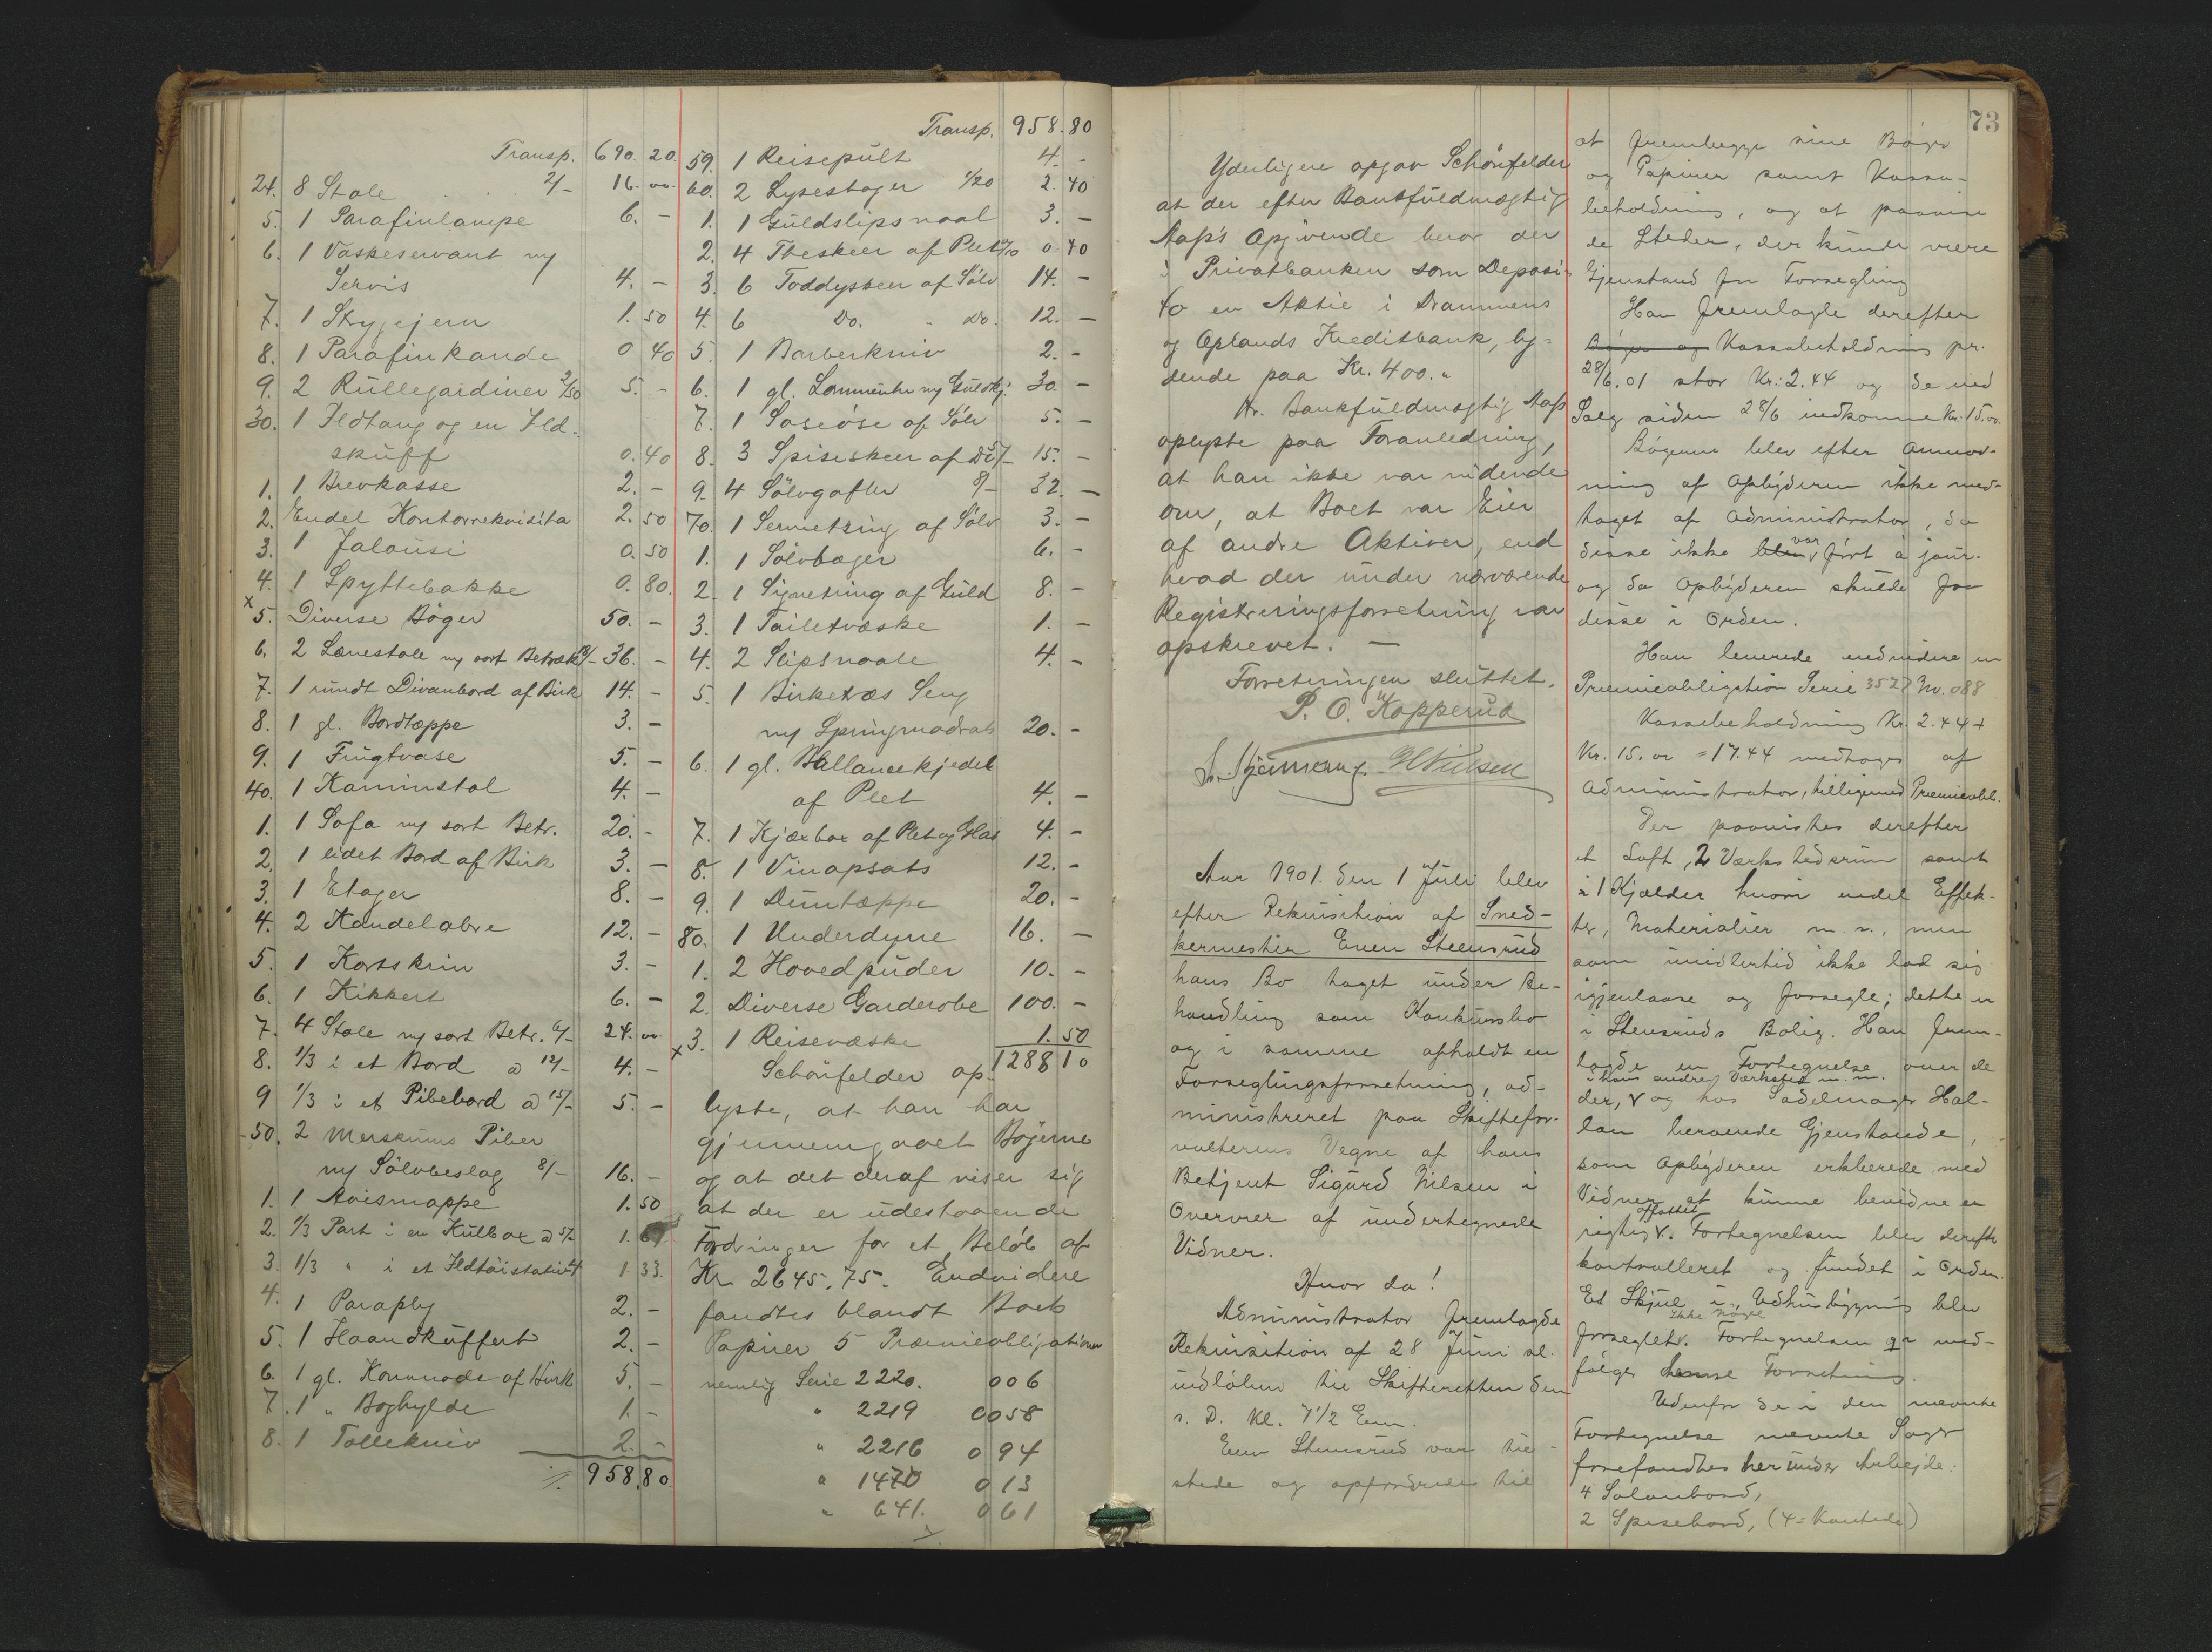 Transp. 690. 20.
24. 8 Stole 2/- 16. 00.
5. 1 Parafinlampe 6. -
6. 1 Vaskeservant m/
Servis 4. -
7. 1 Strygejern 1. 50
8. 1 Parafinkande 0 40
9. 2 Rullegardiner 2/50 5. -
30. 1 Ildtang og en Ild-
skuff 0. 40
1. 1 Brevkasse 2. -
2. Endel Kontorrekvisita 2. 50
3. 1 Jalousi 0. 50
4. 1 Spyttebakke 0. 80.
x 5. Diverse Bøger 50. -
6. 2 Lænestole m/ sort Betræk 18/- 36. -
7. 1 rundt Divanbord af Birk 14. -
8. 1 gl. Bordtæppe 3. -
9. 1 Frugtvase 5. -
40. 1 Kaminstol 4. -
1. 1 Sofa m/ sort Betr. 20. -
2. 1 lidet Bord af Birk 3. -
3. 1 Etager 8. -
4. 2 Kandelabre 12. -
5. 1 Kortskrin 3. -
6. 1 Kikkert 6. -
7. 4 Stole m/ sort Betr. 6/- 24. 00
8. 1/3 i et Bord a 12/- 4. -
9 1/3 i et Pibebord a 15/- 5. -
50. 2 Merskums Piber
m/ Sølvbeslag 8/- 16. -
1. 1 Avismappe 1. 50
2. 1/3 Part i en Kulbox a 5/- 1. 67.
3. 1/3 " i et Ildtøistativ 4 1 33.
4. 1 Paraply 2. -
5. 1 Haandkuffert 2. -
6. 1 gl. Kommode af Birk 5. -
7. 1 " Boghylde 1. -
8. 1 Tollekniv 2. -
958. 80
Transp. 958. 80
59. 1 Reisepult 4. -
60. 2 Lysestager 1/20 2. 40
1. 1 Guldslipsnaal 3. -
2. 4 Theskeer af Plet 0/10 0 40
3. 6 Toddyskeer af Sølv 14. -
4. 6 Do. " Do. 12. -
5. 1 Barberkniv 2. -
6. 1 gl. Lommeuhr m/ Guldkj. 30. -
7. 1 Soseøse af Sølv 5. -
8. 3 Spiseskeer af Do 5/- 15. -
9. 4 Sølvgafler 8/- 32. -
70. 1 Servietring af Sølv 3. -
1. 1 Sølvbæger 6. -
2. 1 Signetring af Guld 8. -
3. 1 Toiletvæske 1. -
4. 2 Slipsnaale 4. -
5. 1 Birketræs Seng
m/ Springmadrats 20. -
6. 1 gl. Ballancekjedel
af Plet 4. -
7. 1 Kjæxbox af Plet og Glas 4. -
8. 1 Vinopsats 12. -
9. 1 Duntæppe 20. -
80. 1 Underdyne 16. -
1. 2 Hovedpuder 10. -
2. Diverse Garderobe 100. -
x 3. 1 Reisevæske 1. 50
Schönfelder op- 1288 10
lyste, at han har
gjennemgaaet Bøgerne
og at det deraf viser sig
at der er udestaaende
Fordringer for et Beløb af
Kr 2645.75. Endvidere
fandtes blandt Boets
Papirer 5 Præmieobligationer
nemlig Serie 2220. 006
" 2219 0058
" 2216 094
" 1470 013
" 641. 061
Yderligere opgav Schönfelder
at der efter Bankfuldmægtig
Aass Opgivende beror der
i Privatbanken som Deposi-
to en Aktie i Drammens
og Oplands Kreditbank, ly-
dende paa Kr. 400."
Hr. Bankfuldmægtig Aass
oplyste paa Foranledning,
at han ikke var vidende
om, at Boet var Eier
af andre Aktiver, end
hvad der under nærværende
Registreringsforretning var
opskrevet. -
Forretningen sluttet.
P. O. Kopperud
H Nielsen
Aar 1901. den 1 Juli blev
efter Rekvisition af Sned-
kermester Even Steensrud
hans Bo taget under Be-
handling som Konkursbo
og i samme afholdt en
Forseglingsforretning, ad-
ministreret paa Skiftefor-
valterens Vegne af hans
Betjent Sigurd Nilsen i
Overvær af undertegnede
Vidner.
Hvor da!
Administrator fremlagde
Rekvisition af 28 Juni sl.
indløben til Skifteretten den
s. D. Kl. 7 1/2 Em.
Even Stensrud var til-
stede og opfordredes til
73
at fremlægge sine Bøger
og Papirer samt Kassa-
beholdning, og at paavise
de Steder, der kunde være
Gjenstand for Forsegling
Han fremlagde derefter
Bøger og Kassabeholdning pr.
28/6. 01 stor Kr: 2.44 og de ved
Salg siden 28/6 indkomne Kr. 15.00.
Bøgerne blev efter Anmod-
ning af Opbyderen ikke med-
taget af Administrator, da
disse ikke blev var ført à jour.
og da Opbyderen skulde faa
disse i Orden.
Han leverede endvidere en
Præmieobligation Serie 3527 No. 088
Kassebeholdning Kr. 2.44 +
Kr. 15.00 = 17.44 medtoges af
Administrator, tilligemed Præmieobl.
Der paavistes derefter
et Loft, 2 Værkstedsrum samt
i 1 Kjælder hvori endel Effek-
ter, Materialier m.v., men
som imidlertid ikke lod sig
igjenlaase og forsegle; dette er
i Stensruds Bolig. Han frem-
lagde en Fortegnelse over de
i hans andre Værksted m. m.
der, v og hos Sadelmager Hal-
lan beroende Gjenstande,
som Opbyderen erklærede med
Vidner at kunne bevidne er
rigtig v. affattet Fortegnelsen blev derefter
kontrolleret og fundet i Orden.
Et Skjul i Udhusbygning blev
Ikke Nøgel
forseglet v. Fortegnelsen med-
følger denne Forretning.
Udenfor de i den nævnte
Fortegnelse nævnte Sager
forefandtes herunder Arbejde:
4 Salonbord,
2 Spisebord, (4=Kantede)